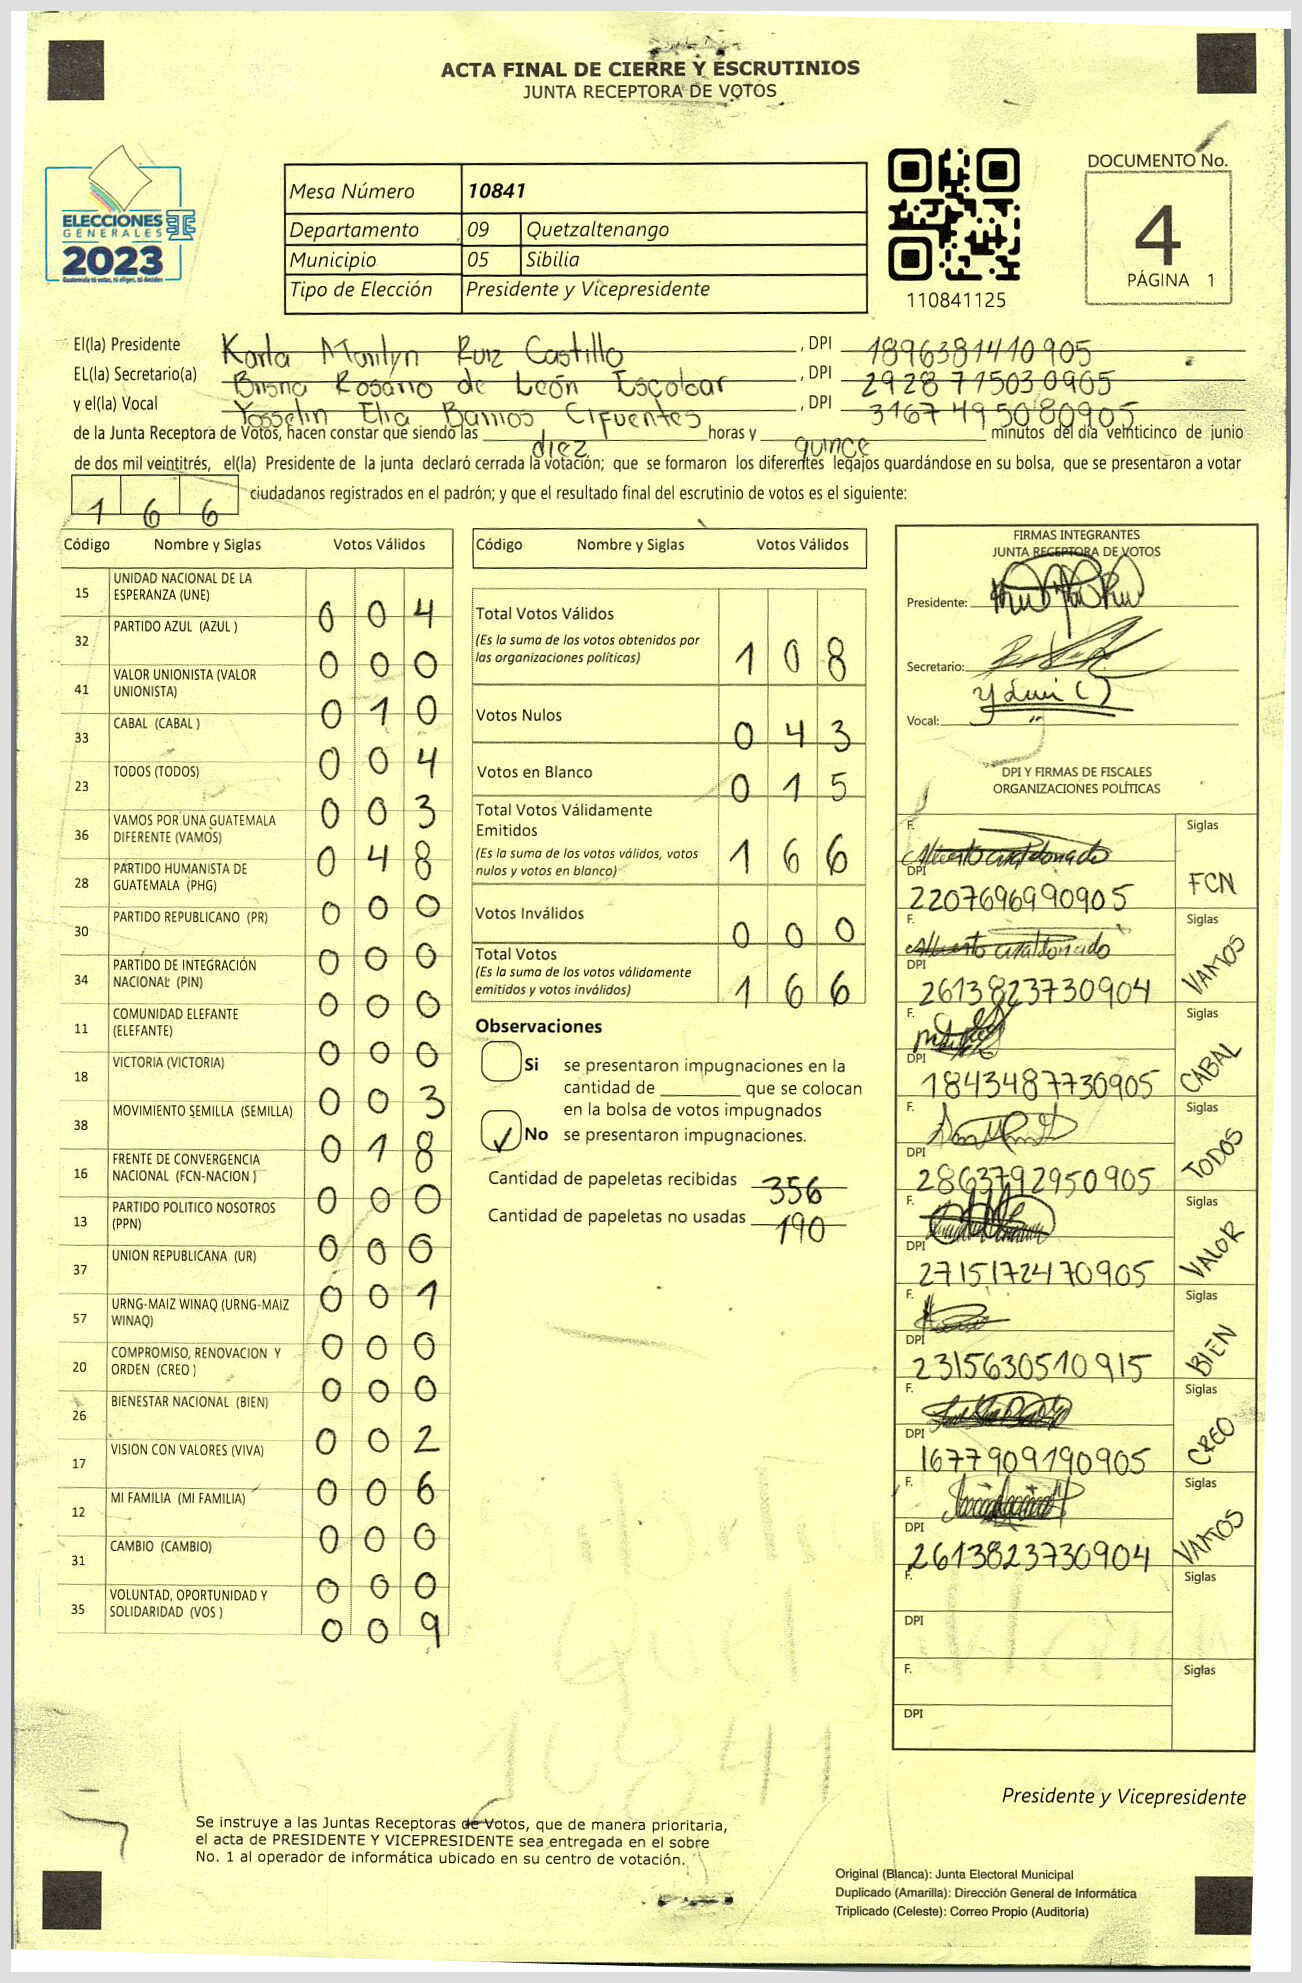 ACTA FINAL DE CIERRE Y ESCRUTINIOS
JUNTA RECEPTORA DE VOTOS
ELECCIONES
GENERALES
2023
Mesa Número 10841
Departamento 09 Quetzaltenango
Municipio 05 Sibilia
Tipo de Elección Presidente y Vicepresidente
110841125
DOCUMENTO No.
4
PÁGINA 1
El(la) Presidente Karla Marilyn Ruiz Castillo, DPI 1896381410905
EL(la) Secretario(a) Rosario de León Escobar, DPI 2928715030905
y el(la) Vocal Yosselin Elia Barrios Cifuentes, DPI 3167495080905
de la Junta Receptora de Votos, hacen constar que siendo las diez horas y quince minutos del día veinticinco de junio
de dos mil veintitrés, el(la) Presidente de la junta declaró cerrada la votación; que se formaron los diferentes legajos guardándose en su bolsa, que se presentaron a votar
166 ciudadanos registrados en el padrón; y que el resultado final del escrutinio de votos es el siguiente:
Código Nombre y Siglas Votos Válidos
15 UNIDAD NACIONAL DE LA ESPERANZA (UNE) 004
32 PARTIDO AZUL (AZUL ) 000
41 VALOR UNIONISTA (VALOR UNIONISTA) 010
33 CABAL (CABAL ) 004
23 TODOS (TODOS) 003
36 VAMOS POR UNA GUATEMALA DIFERENTE (VAMOS) 048
28 PARTIDO HUMANISTA DE GUATEMALA (PHG) 000
30 PARTIDO REPUBLICANO (PR) 000
34 PARTIDO DE INTEGRACIÓN NACIONAL (PIN) 000
11 COMUNIDAD ELEFANTE (ELEFANTE) 000
18 VICTORIA (VICTORIA) 003
38 MOVIMIENTO SEMILLA (SEMILLA) 018
16 FRENTE DE CONVERGENCIA NACIONAL (FCN-NACION ) 000
13 PARTIDO POLITICO NOSOTROS (PPN) 000
37 UNION REPUBLICANA (UR) 001
57 URNG-MAIZ WINAQ (URNG-MAIZ WINAQ) 000
20 COMPROMISO, RENOVACION Y ORDEN (CREO ) 000
26 BIENESTAR NACIONAL (BIEN) 002
17 VISION CON VALORES (VIVA) 006
12 MI FAMILIA (MI FAMILIA) 000
31 CAMBIO (CAMBIO) 000
35 VOLUNTAD, OPORTUNIDAD Y SOLIDARIDAD (VOS ) 009
Código Nombre y Siglas Votos Válidos
Total Votos Válidos 108
(Es la suma de los votos obtenidos por
las organizaciones políticas)
Votos Nulos 043
Votos en Blanco 015
Total Votos Válidamente
Emitidos 166
(Es la suma de los votos válidos, votos
nulos y votos en blanco)
Votos Inválidos 000
Total Votos 166
(Es la suma de los votos válidamente
emitidos y votos inválidos)
Observaciones
Si se presentaron impugnaciones en la
cantidad de ________ que se colocan
en la bolsa de votos impugnados
No se presentaron impugnaciones.
Cantidad de papeletas recibidas 356
Cantidad de papeletas no usadas 190
FIRMAS INTEGRANTES
JUNTA RECEPTORA DE VOTOS
Presidente:
Secretario:
Vocal:
DPI Y FIRMAS DE FISCALES
ORGANIZACIONES POLÍTICAS
F. Siglas
DPI 2207696990905 FCN
F. Siglas
DPI 2613823730904 VAMOS
F. Siglas
DPI 1843487730905 CABAL
F. Siglas
DPI 2863792950905 TODOS
F. Siglas
DPI 2715172470905 VALOR
F. Siglas
DPI 2315630510915 BIEN
F. Siglas
DPI 1677909190905 CREO
F. Siglas
DPI 2613823730904 VAMOS
F. Siglas
DPI
F. Siglas
DPI
Presidente y Vicepresidente
Se instruye a las Juntas Receptoras de Votos, que de manera prioritaria,
el acta de PRESIDENTE Y VICEPRESIDENTE sea entregada en el sobre
No. 1 al operador de informática ubicado en su centro de votación.
Original (Blanca): Junta Electoral Municipal
Duplicado (Amarilla): Dirección General de Informática
Triplicado (Celeste): Correo Propio (Auditoría)